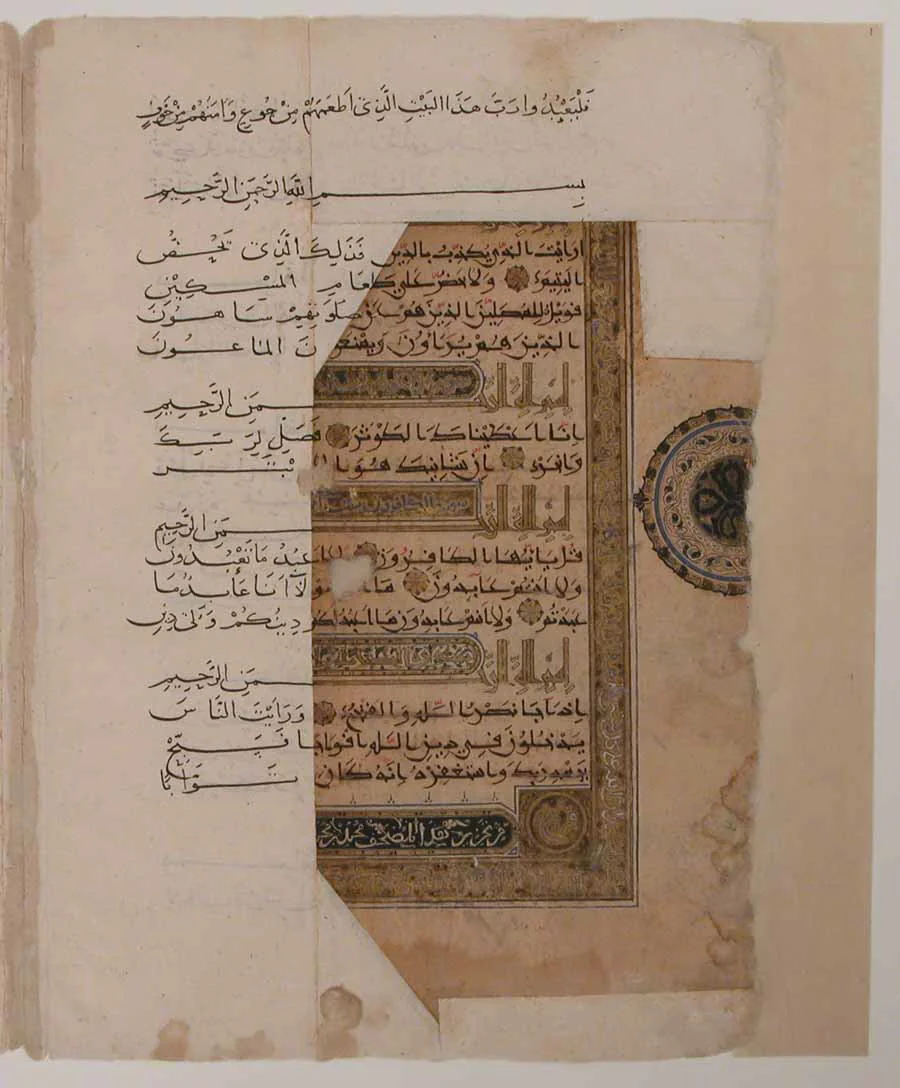 فليعبدوا رب هذا البيت الذي أطعمهم من جوع وآمنهم من خوف
بسم الله الرحمن الرحيم
ارايت الذي يكذب بالدين فذلك الذي
اليتيم ولا يحض على طعام المسكين
فويل للمصلين الذين هم عن صلوتهم ساهون
الذين هم يراون ويمنعون الماعون
بسم الله الرحمن الرحيم
انا اعطيناك الكوثر فصل لربك
وانحر ان شانيك هو الا بتر
سورة الكافرون
بسم الله الرحمن الرحيم
قل يايها الكافرون لا اعبد ما تعبدون
ولا انتم عابدون ما ولا أنا عابد ما
عبدتم ولا انتم عابدون ما اعبد لكم دينكم ولي دين
بسم الله الرحمن الرحيم
اذا جا نصر الله والفتح ورايت الناس
يدخلون في دين الله افواجا فسبح
بحمد ربك واستغفره انه كان توابا
المصحف محمد